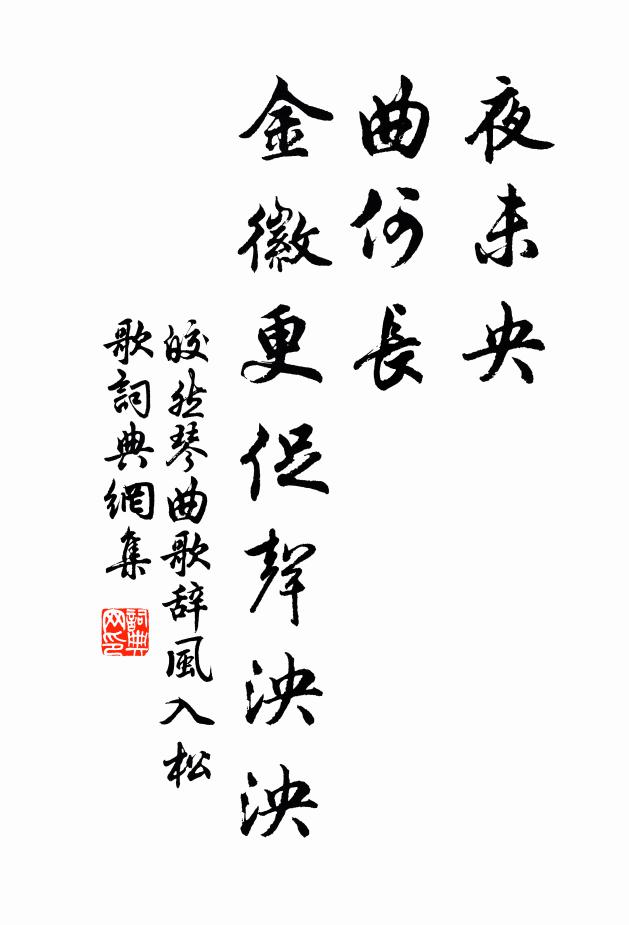 夜未央
曲何長
金徽更促聲泱泱
皎然琴曲歌辞風入松
歌詞典網集
詞典
网印